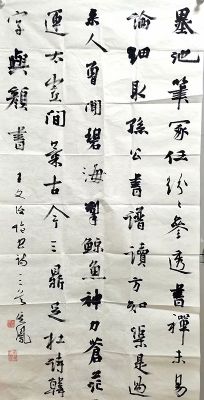 墨池筆冢任紛〻參透書禪未易
論細取孫公書譜讀方知渠是過
來人曾聞碧海掣鯨魚神力蒼茫
運太虛間氣古今三鼎足杜詩韓
字與顏書
王文治論書詩二首